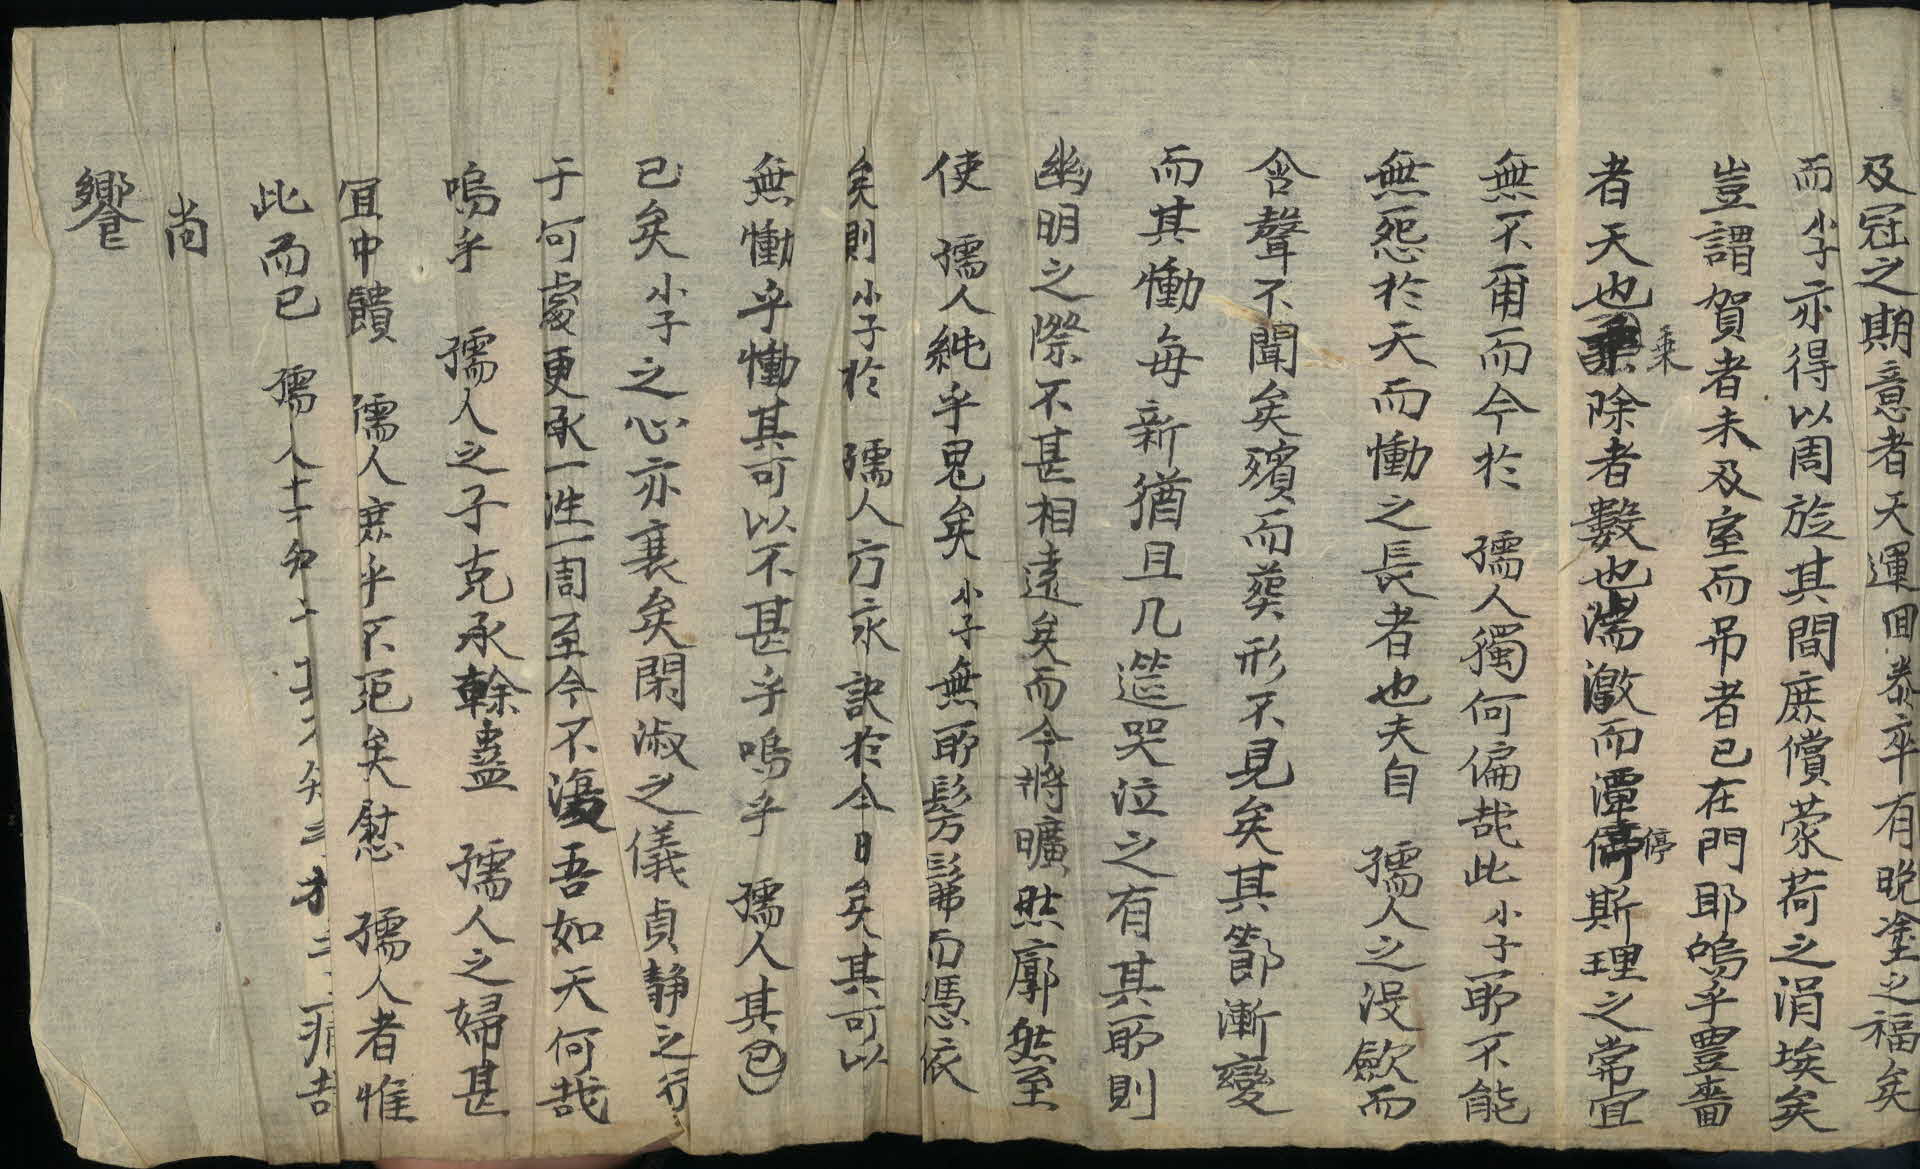 及冠之期意者天運回泰卒有晚塗之福矣
而小子亦得以周旋其間庶償蒙荷之涓埃矣
豈謂賀者未及室而吊者已在門耶嗚乎豊嗇
者天也乘除者數也湍激而潭停斯理之常宜
無不爾而今於 孺人獨何偏哉此小子所不能
無怨於天而慟之長者也夫自 孺人之沒斂而
含聲不聞矣殯而葬形不見矣其節漸變
而其慟每新猶且几莚哭泣之有其所則
幽明之際不甚相遠矣而今將曠然廓然至
使 孺人純乎鬼矣小子無所髣髴而憑依
矣則小子於 孺人方永訣於今日矣其可以
無慟乎慟其可以不甚乎嗚乎 孺人其
已矣小子之心亦衰矣閑淑之儀貞靜之行
于何處更承一往一周至今不復吾如天何哉
嗚乎 孺人之子克承幹蠱 孺人之婦甚
宜中饋 儒人庶乎不死矣慰 孺人者惟
此而已 孺人
尚
饗